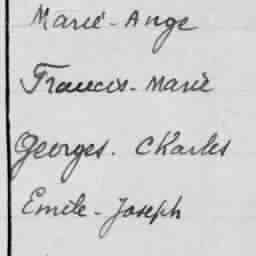 Marie-Ange
Francis-Marie
Georges. Charles
Emile-Joseph